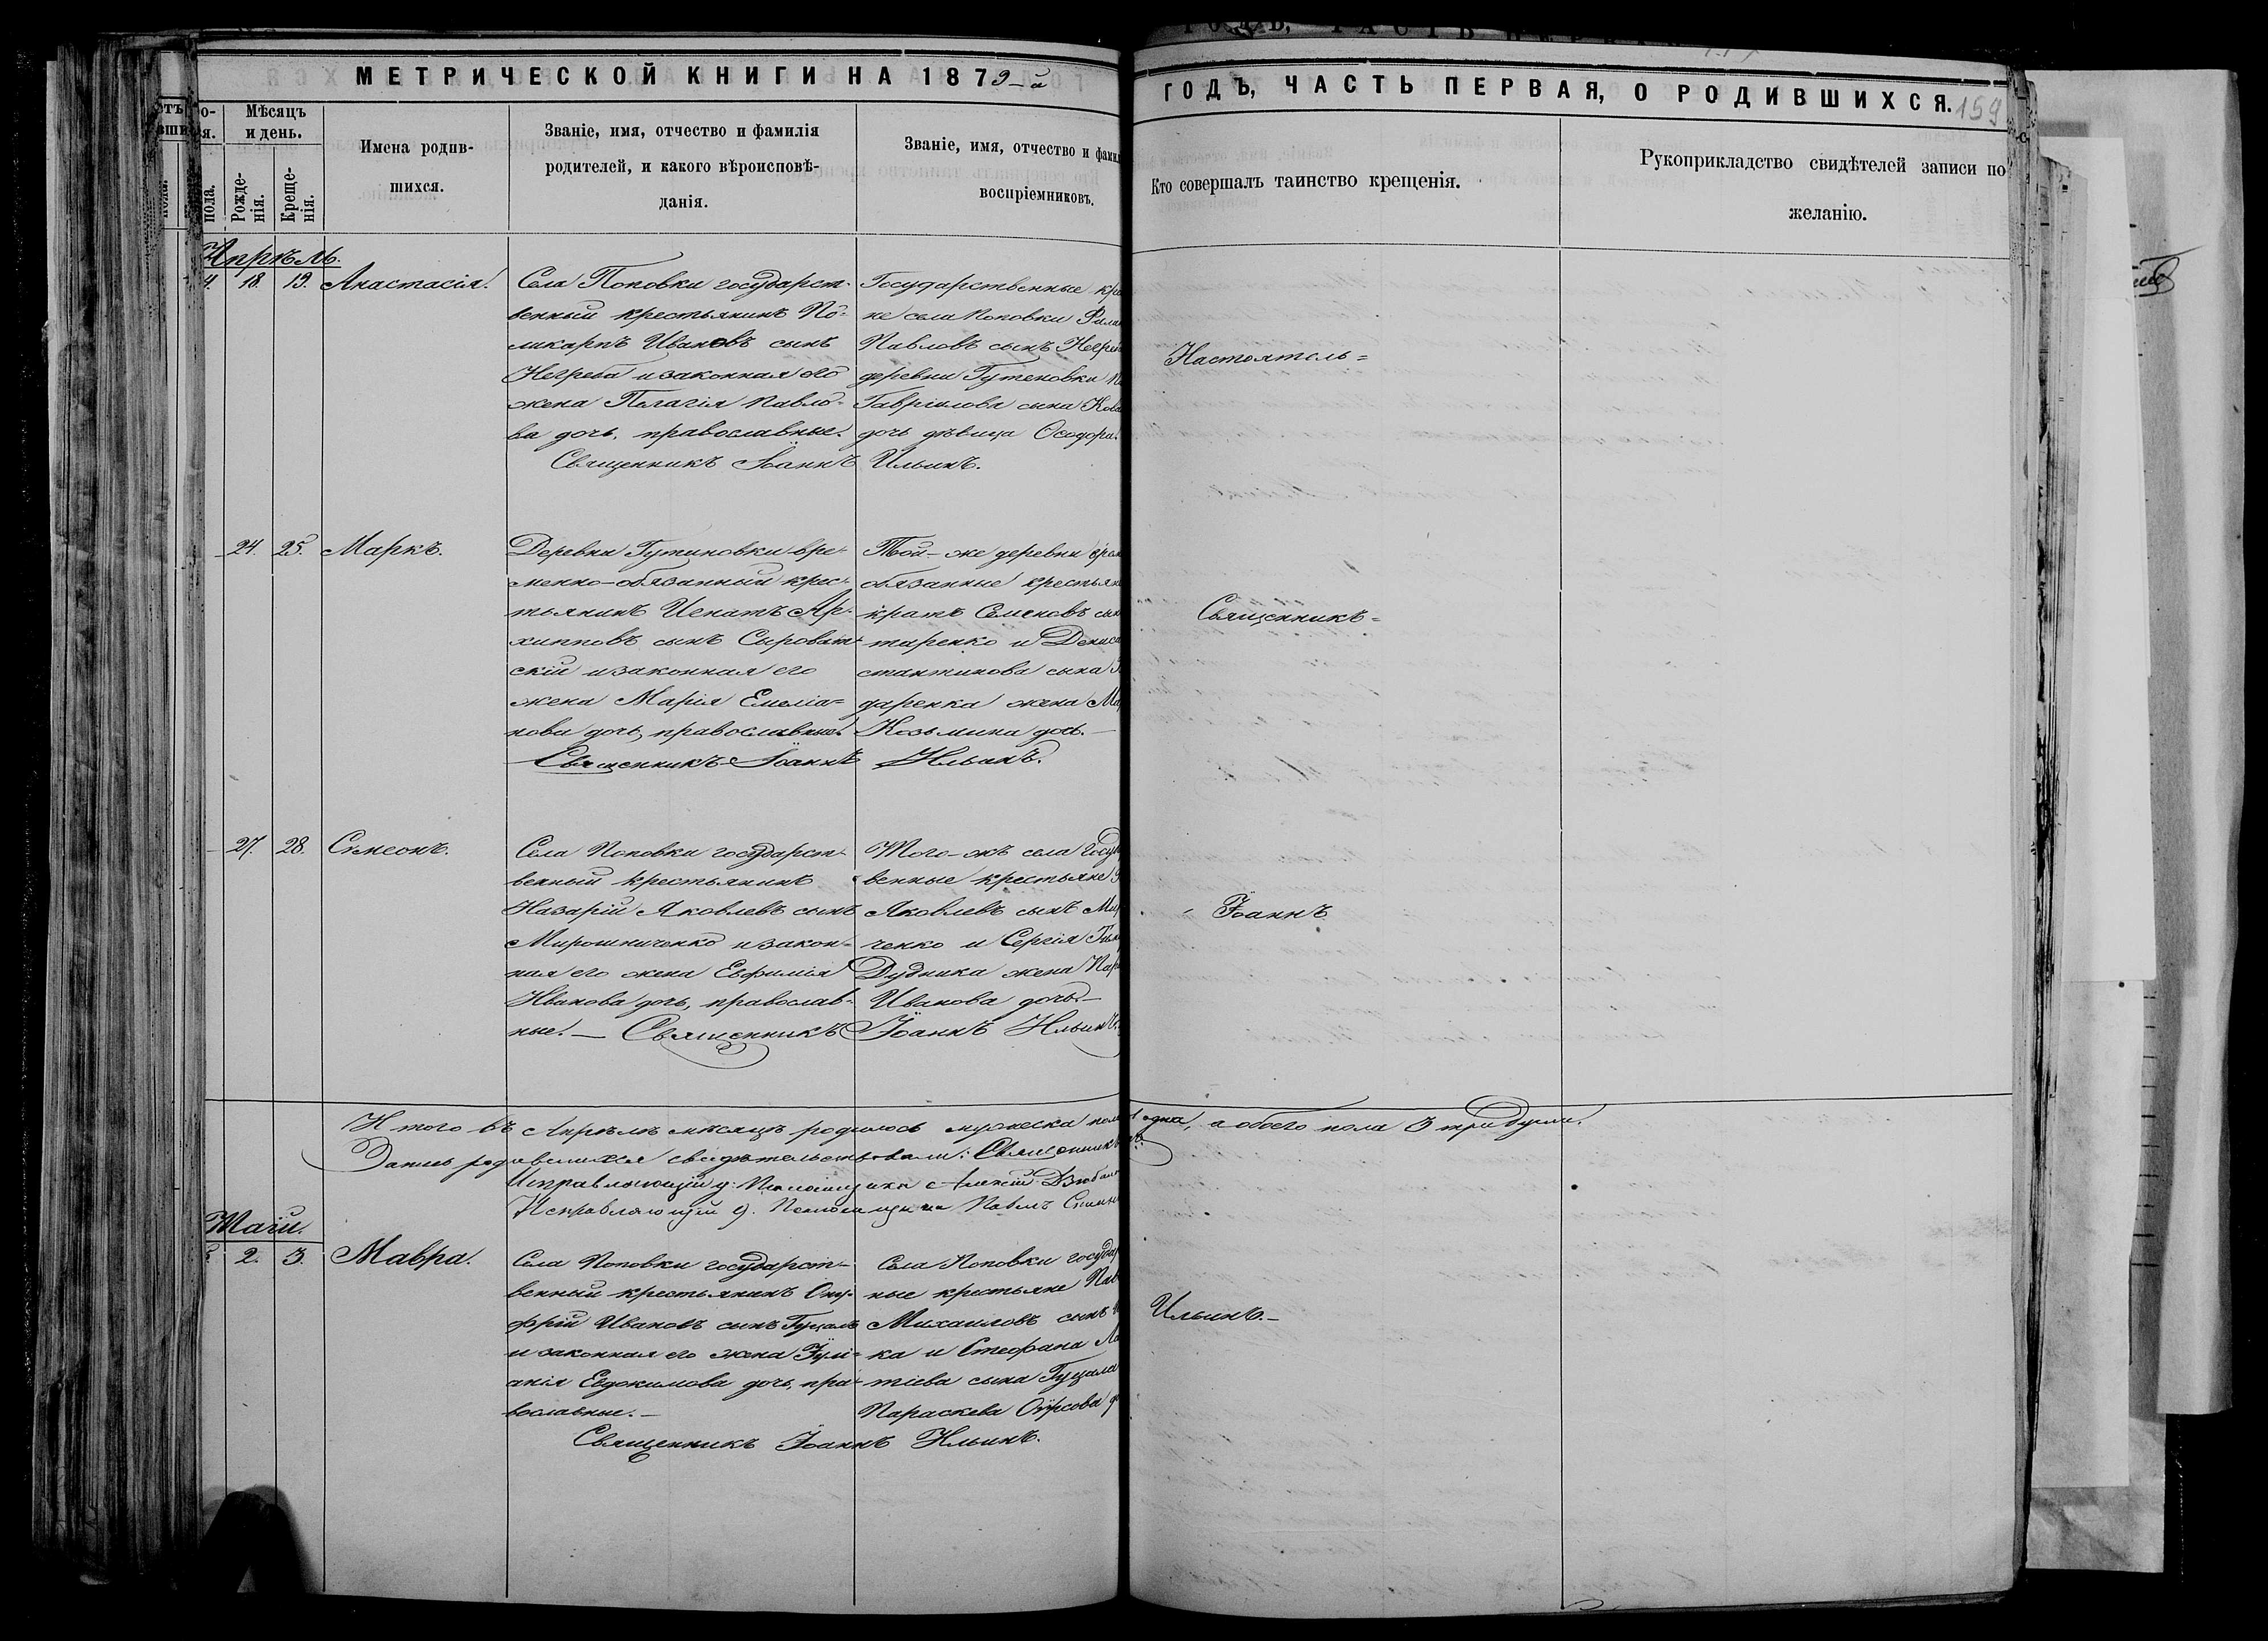 МЕТРИЧЕСКОЙ КНИГИ НА 1879-й
ГОДЪ, ЧАСТЬ ПЕРВАЯ, О РОДИВШИХСЯ.
159
Мѣсяцъ
и день.
Рожде-
нія.
Креще-
нія.
пола.
Имена родив-
шихся.
Званіе, имя, отчество и фамилія
родителей, и какого вѣроисповѣ-
данія.
Званіе, имя, отчество и фами
воспріемниковъ.
Кто совершалъ таинство крещенія.
Рукоприкладство свидѣтелей записи по
желанію.
Апрѣль.
4. 18. 19. Анастасія.
Села Поповки государст-
венный крестьянинъ По-
ликарпъ Ивановъ сынъ
Негреба и законная его
жена Пелагія Павло-
ва дочь, православные.
Государственные кре
не села Поповки
Павловъ сынъ
деревни Гутеновки
Гавріилова сына
дочь дѣвица Ѳеодора.
Священникъ Іоаннъ Ильинъ.
24. 25. Маркъ.
Деревни Гутиновки вре-
менно-обязанный крес-
тьянинъ Игнатъ Ар-
хипповъ сынъ Сыроват-
скій и законная его
жена Марія Емеліа-
нова дочь, православные.
Той-же деревни врем
обязанные крестьян
кратъ Семеновъ сын
таренко и Дениса
стантинова сына
даренка жена Ма
Козьмина дочь.
Священникъ Іоаннъ Ильинъ.
27. 28. Сѵмеонъ.
Села Поповки государст-
венный крестьянинъ
Назарій Яковлевъ сынъ
Мирошниченко и закон-
ная его жена Евфимія
Иванова дочь, православ-
ные.
Того-жъ села госуд
венные крестьяне
Яковлевъ сынъ Ми
ченко и Сергія
Дудника жена Пар
Иванова дочь.
Священникъ Іоаннъ Ильинъ.
Итого въ Апрѣлѣ мѣсяцѣ родилось мужеска пола одна, а обоего пола 3 три души.
Запись родившихся свидѣтельствовали: Священникъ
Исправляющій д. Псаломщика Алексій
Исправляющій д. Псаломщика Павелъ
Маій.
2. 3. Мавра.
Села Поповки государст-
венный крестьянинъ Ону-
фрій Ивановъ сынъ Гуцалъ
и законная его жена Іулі-
анія Евдокимова дочь, пра-
вославные.
Села Поповки госуда
ные крестьяне Пав
Михаиловъ сынъ
ка и Стефана
тіева сына Гуцала
Параскева Фирсова
Священникъ Іоаннъ Ильинъ.
Настоятель-
Священникъ-
Іоаннъ
Ильинъ.